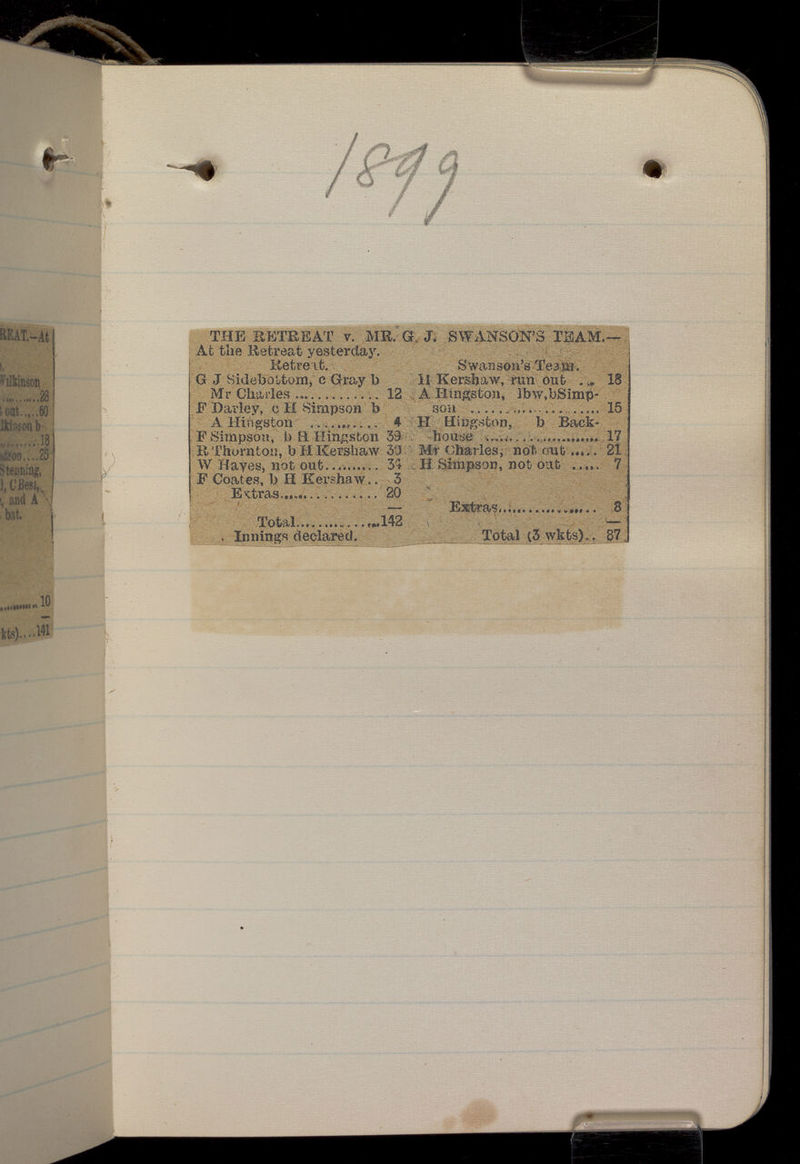 REAT.—At
Wilkinson
28
out.....60
lkinson b
18
28
Stenning,
, C Best,
, and A
bat.
10
kts)....141
1899
THE RETREAT v. MR. G. J. SWANSON'S TEAM.—
At the Retreat yesterday.
Retreat.
G J Sidebottom, c Gray b
Mr Charles ............. 12
F Darley, c H Simpson b
A Hingston .......... 4
F Simpson, b H Hingston 39
R Thornton, b H Kershaw
W Hayes, not out.........
F Coates, b H Kershaw.. 3
Extras............... 20
—
Total..............142
Innings declared.
Swanson's Team.
H Kershaw, run out ... 18
A Hingston, lbw, b Simp-
son .................. 15
H Hingston, b Back-
house ................ 17
Mr Charles, not out ..... 21
H Simpson, not out ..... 7
Extras............... 8
—
Total (3 wkts).. 87